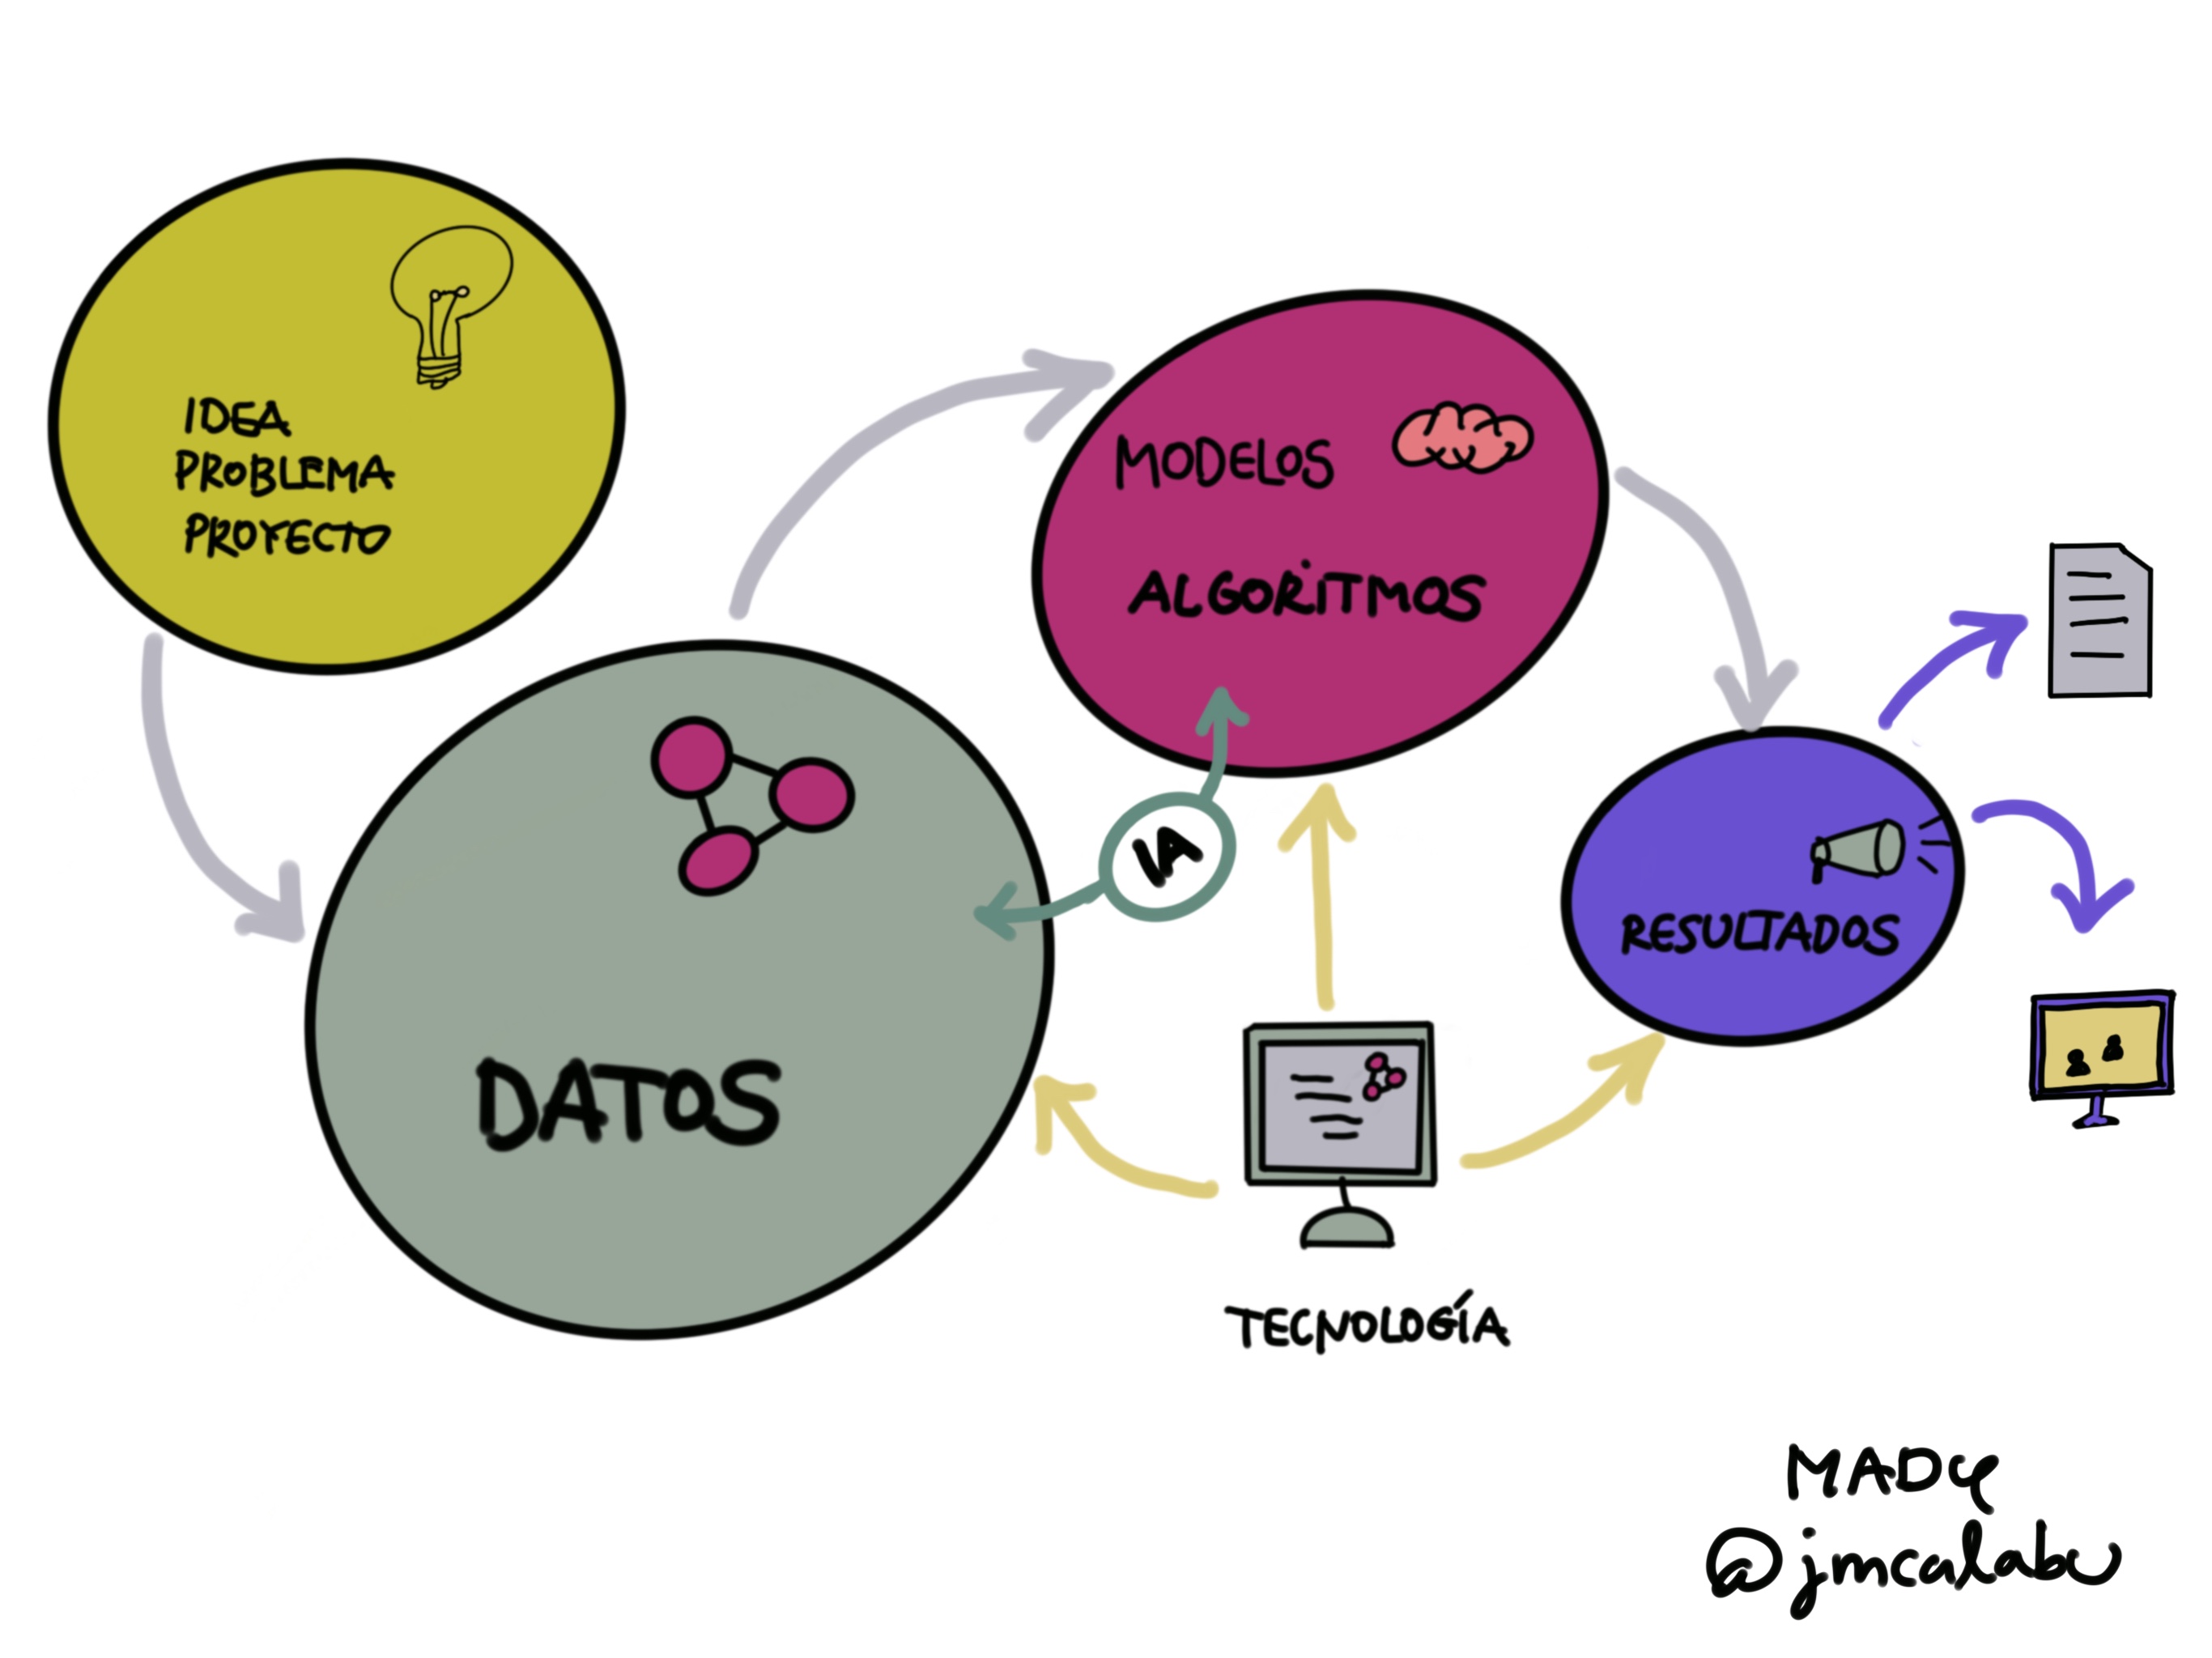 IDEA
PROBLEMA
PROYECTO
MODELOS
ALGORITMOS
IA
DATOS
RESULTADOS
TECNOLOGÍA
@jmcalabu